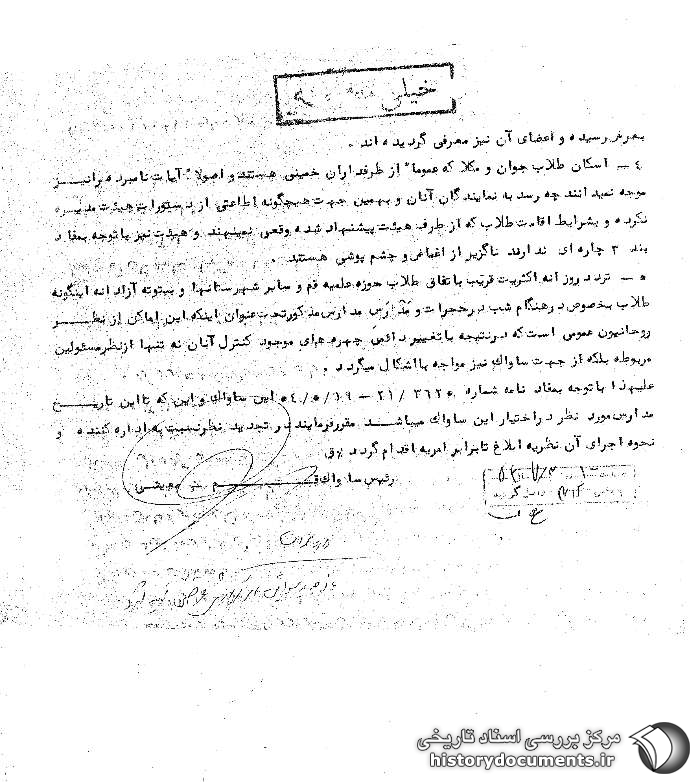 خیلی
بعرض رسیده و اعضای آن نیز معرفی گردیده اند .
٤ ـ اسکان طلاب جوان و مکلا که عموما" از طرفداران خمینی هستند و اصولا" آیات نامبرده را نیز
موجه نمیدانند چه رسد به نمایندگان آنان و بهمین جهت هیچگونه اطاعتی از دستورات هیئت مدیره
نکرده و بشرایط اقامت طلاب که از طرف هیئت پیشنهاد شده وقعی نمینهند و هیئت نیز با توجه بمفاد
بند ٢ چاره ای ندارند ناگزیر از اغماض و چشم پوشی هستند .
٥ ـ تردد روزانه اکثریت قریب باتفاق طلاب حوزه علمیه قم و سایر شهرستانها و بیتوته آزادانه اینگونه
طلاب بخصوص در هنگام شب در حجرات و مدارس مدارس مذکور تحت عنوان اینکه این اماکن از نظر
روحانیون عمومی است که در نتیجه با تغییر دائمی چهره های موجود کنترل آنان نه تنها از نظر مسئولین
مربوطه بلکه از جهت ساواک نیز مواجه با اشکال میگردد .
علیهذا با توجه بمفاد نامه شماره ٣٦٢٥ /٢١ – ٥/١٩/ ٥٤ این ساواک و این که تا این تاریخ
مدارس مورد نظر در اختیار این ساواک میباشد مقرر فرمایند در تجدید نظر نسبت به اداره کننده و
نحوه اجرای آن نظریه ابلاغ تا برابر امریه اقدام گردد
رئیس ساواک قم
مرکز بررسی اسناد تاریخی
historydocuments.ir